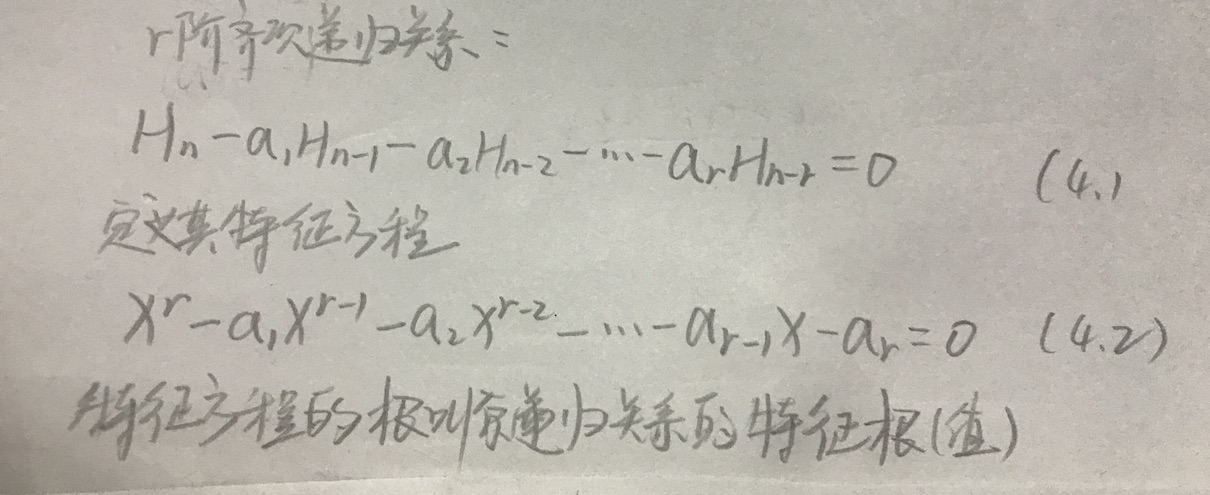 r阶齐次递归关系:
Hₙ-a₁Hₙ₋₁-a₂Hₙ₋₂-...-aᵣHₙ₋ᵣ=0 (4.1
定义其特征方程
xʳ-a₁xʳ⁻¹-a₂xʳ⁻²-...-aᵣ₋₁x-aᵣ=0 (4.2)
特征方程的根叫原递归关系的特征根(值)